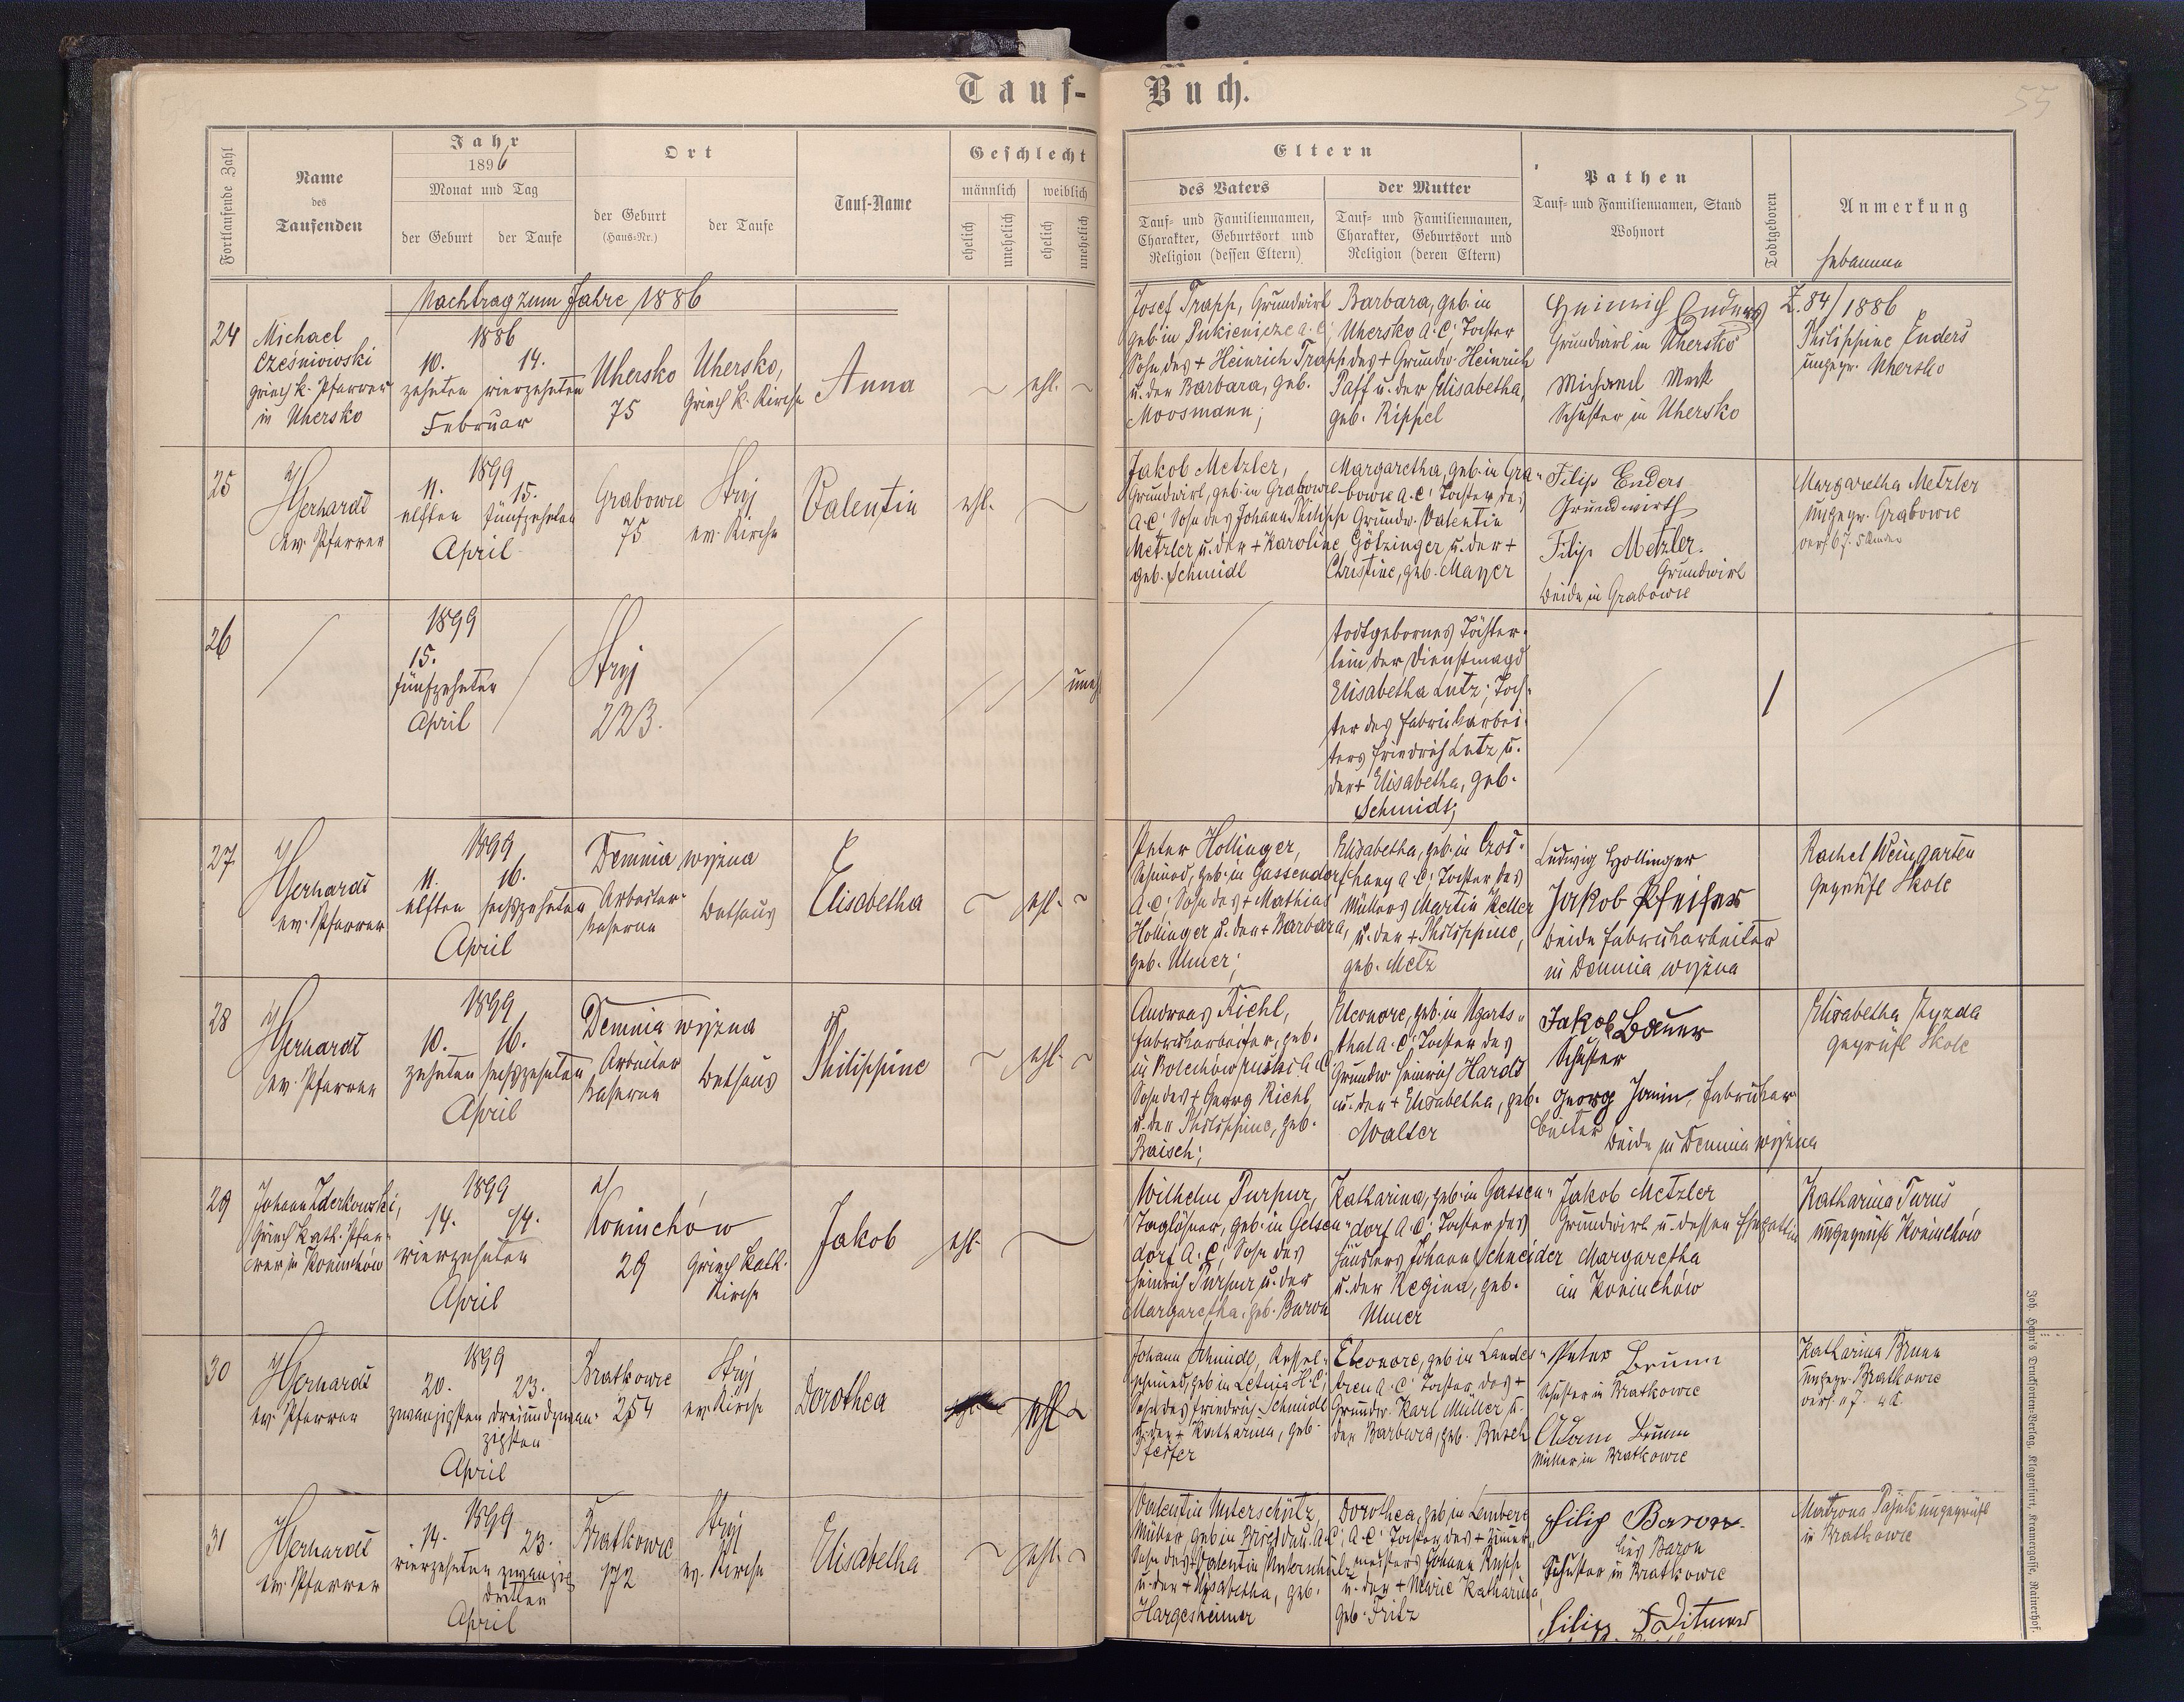 Tauf-Buch.
55
Fortlaufende Zahl
Name
des
Taufenden
Jahr
1896
Monat und Tag
der Geburt
der Taufe
Ort
der Geburt
(Haus-Nr.)
der Taufe
Tauf-Name
Geschlecht
männlich
weiblich
ehelich
unehelich
ehelich
unehelich
Eltern
des Vaters
Tauf- und Familiennamen,
Charakter, Geburtsort und
Religion (dessen Eltern)
der Mutter
Tauf- und Familiennamen,
Charakter, Geburtsort und
Religion (deren Eltern)
Pathen
Tauf- und Familiennamen, Stand
Wohnort
Todtgeboren
Anmerkung
Hebamme
Nachtrag zum Jahre 1886
24
Michael
Cześniowski
griech k. Pfarrer
in Uhersko
1886
10. 14.
zehnten vierzehnten
Februar
Uhersko
75
Uhersko,
Griech k. Kirche
Anna
ehl.
Josef Trapp, Grundwirt
geb in Pukienicze a. C.
Sohn des + Heinrich Trapp
u. der Barbara, geb.
Moosmann;
Barbara, geb. in
Uhersko A. C. Tochter
des + Grundw. Heinrich
Paff u. der Elisabetha,
geb. Rippel
Heinrich Enders
Grundwirt in Uhersko
Michael Mock
Schuster in Uhersko
Z. 84/1886
Philippine Enders
ungepr. Uhersko
25
Gerhardt
ev. Pfarrer
1899
11. 15.
elften fünfzehnten
April
Grabowce
75
Stryj
ev. Kirche
Valentin
ehl.
Jakob Metzler,
Grundwirt, geb. in Grabowce
A. C. Sohn des Johann Philipp
Metzler u. der + Karoline
geb. Schmidt
Margaretha, geb. in Gra-
bowce A. C. Tochter des
Grundw. Valentin
Götzinger u. der +
Christine, geb. Mayer
Filip Enders
Grundwirth
Filip Metzler.
Grundwirt
beide in Grabowce
Margaretha Metzler
ungepr. Grabowce
26
1899
15.
fünfzehnten
April
Stryj
223.
uneh
todtgebornes Töchter-
lein der Dienstmagd
Elisabetha Lutz; Toch-
ter des Fabrikarbei-
ters Friedrich Lutz u.
der + Elisabetha, geb.
Schmidt;
27
Gerhardt
ev. Pfarrer
1899
11. 16.
elften sechszehnten
April
Demnia wyżna
Arbeiter-
kaserne
Bethaus
Elisabetha
ehl.
Peter Hollinger,
Schmied, geb. in Gassendorf
A. C. Sohn des + Mathias
Hollinger u. der + Barbara,
geb. Ulmer;
Elisabetha, geb. in
A. C. Tochter des
Müllers Martin Keller
u. der + Philippine,
geb. Metz
Ludwig Hollinger
Jakob Pfeifer
beide Fabrikarbeiter
in Demnia wyżna
Rachel Weingarten
geprüft Skole
28
Gerhardt
ev. Pfarrer
1899
10. 16.
zehnten sechszehnten
April
Demnia wyżna
Arbeiter
kaserne
Bethaus
Philippine
ehl.
Andreas Riehl,
Fabrikarbeiter, geb.
in Bolechów ruski A C
Sohn des + Georg Riehl,
u. der Philippine, geb.
Baisch;
Eleonore, geb. in Ugarts-
thal A. C. Tochter des
Grundw Heinrich Hardt
u. der + Elisabetha, geb.
Walter
Jakob Bauer
Schuster
Georg Janin, Fabrikar
beiter
beide in Demnia wyżna
Elisabetha Hyzda
geprüft Skole
29
Johann Zderkowski,
Griech kath. Pfar-
rer in Koniuchów
1899
14. 14.
vierzehnten
April
Koniuchów
29
Griech kath.
Kirche
Jakob
ehl.
Wilhelm Purpur,
Taglöhner, geb. in Gelsen-
dorf A. C., Sohn des
Heinrich Purpur u. der
Margaretha, geb. Baron
Katharina, geb. in Gassen-
dorf A. C. Tochter des
Häuslers Johann Schneider
u. der Regina, geb.
Ulmer
Jakob Metzler
Grundwirt u. dessen Ehegattin
Margaretha
in Koniuchów
Katharina Turus
ungeprüft Koniuchów
30
Gerhardt
ev. Pfarrer
1899
20. 23.
zwanzigsten dreiundzwan-
zigsten
April
Bratkowce
254
Stryj
ev. Kirche
Dorothea
ehl.
Johann Schmidt, Kessel-
schmied, geb in Letnia H. C.
Sohn des Friedrich Schmidt
u. der + Katharina, geb.
Eleonore, geb in Landes-
treu A. C. Tochter des +
Grundw. Karl Müller u.
der Barbara, geb. Busch
Peter Brunn
Schuster in Bratkowce
Adam Brunn
Müller in Bratkowce
Katharina Brunn
ungepr. Bratkowce
31
Gerhardt
ev. Pfarrer
1899
14. 23.
vierzehnten zwanzig
dritten
April
Bratkowce
172
Stryj
ev. Kirche
Elisabetha
ehl.
Valentin Unterschütz,
Müller, geb in Brigidau A. C.
Sohn des + Valentin Unterschütz
u. der + Elisabetha, geb.
Hargesheimer
Dorothea, geb in Lemberg
A. C. Tochter des + Zimmer-
meisters Johann Rupp
u. der + Marie Katharina,
geb. Fritz
Filip Baron
lies Baron
Schuster in Bratkowce
Filip Ditmer
Matrona Pajuk ungeprüft
in Bratkowce
Joh. Heyn's Drucksorten-Verlag, Klagenfurt, Kramergasse, Rainerhof.